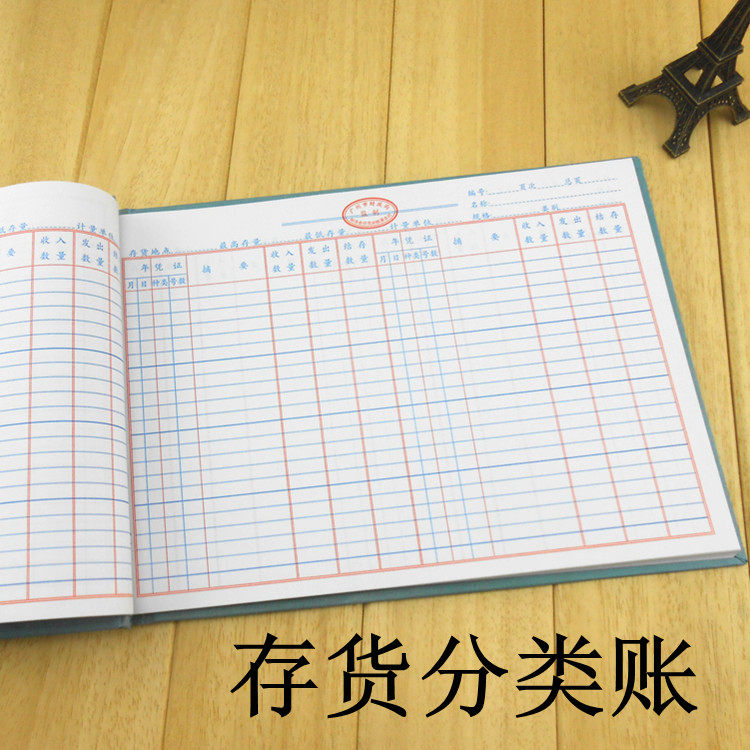 编号 页次 总页
名称
规格 类别
监制
存货地点 最高存量 最低存量 计量单位
年 凭 证 摘 要 收入数量 发出数量 结存数量 年 凭 证 摘 要 收入数量 发出数量 结存数量
月 日 种类 号数 月 日 种类 号数
存量 计量单位
收入数量 发出数量
存货分类账